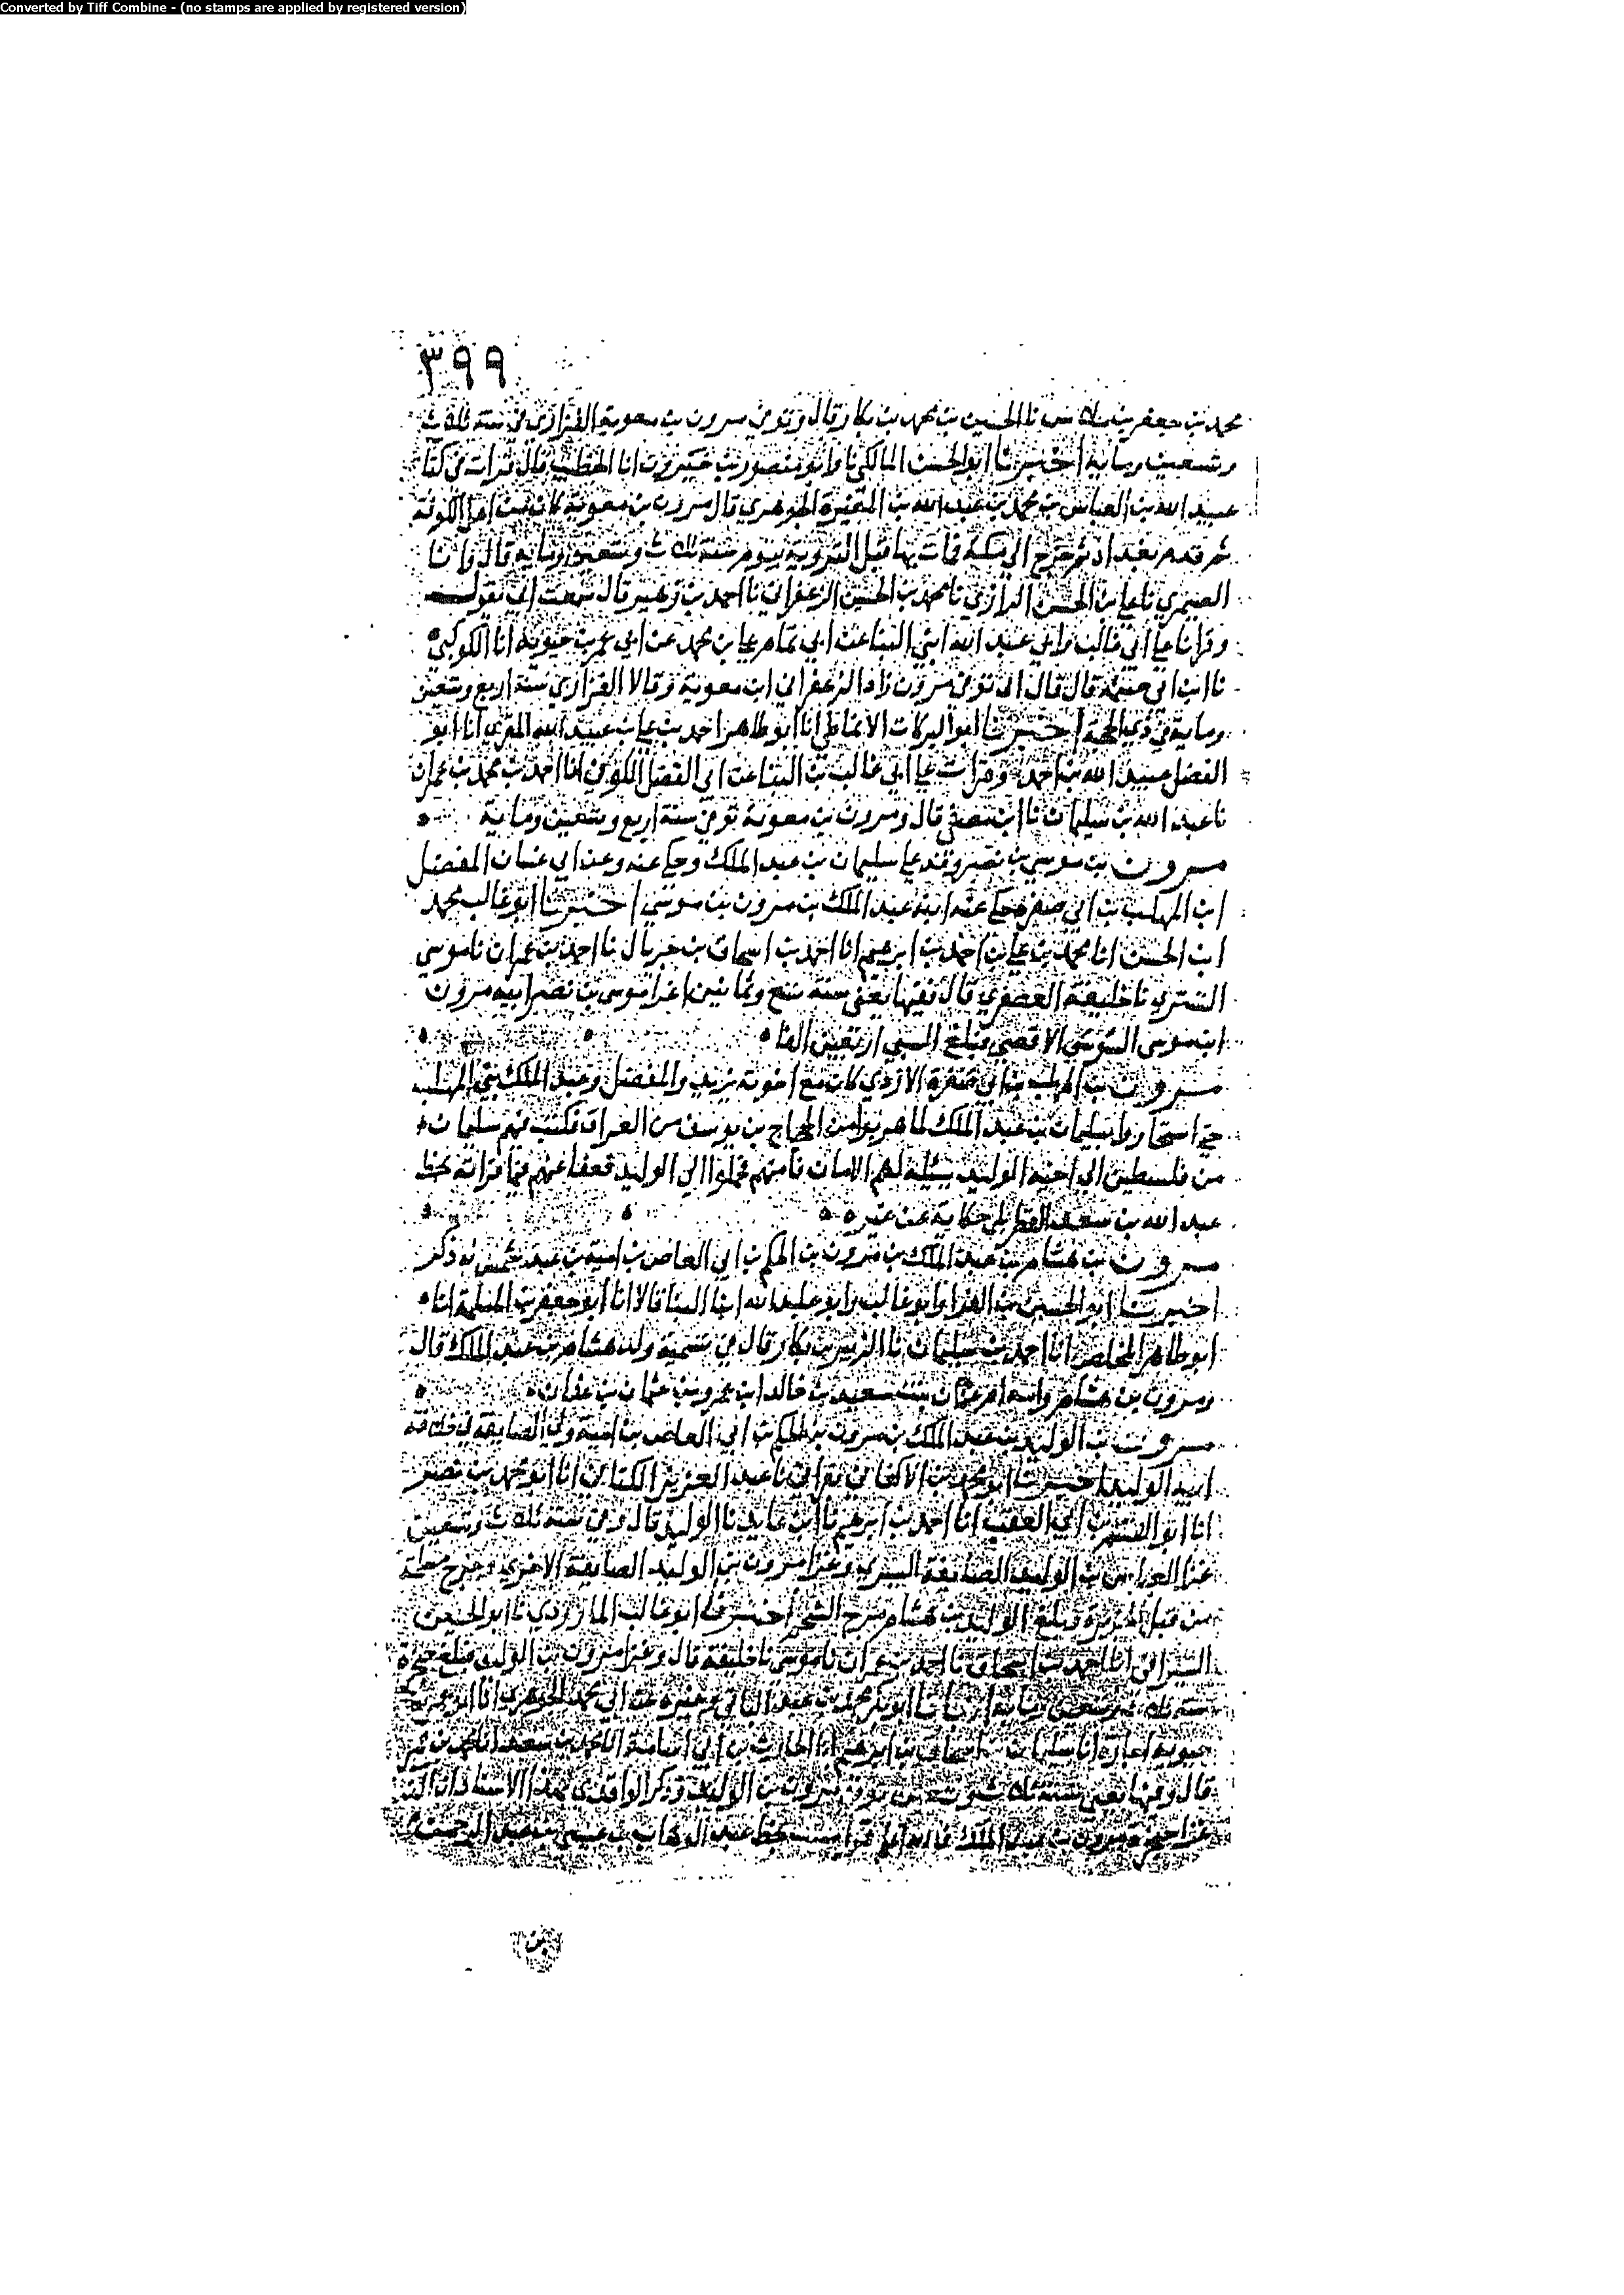 Converted by Tiff Combine - (no stamps are applied by registered version)
٣٩٩
محمد بن جعفر بن ملاس نا الحسين بن محمد بن بكار قال وتوفي مرون بن معوية الفزاري في سنة ثلاث
وتسعين وماية اخبرنا ابو الحسن المالكي نا وابو منصور بن خيرون انا الخطيب قال قرات في كتا
عبيد الله بن العباس بن محمد بن عبد الله بن المغيرة الجوهري قال مرون بن معوية كان من اهل الكوفة
ثم قدم بغداد ثم خرج الى مكة فمات بها قبل التروية بيوم سنة ثلاث وتسعين وماية قال وانا
الصيمري نا علي بن الحسن الرازي نا محمد بن الحسين الزعفراني نا احمد بن زهير قال سمعت ابي يقول
وقرانا علي ابي غالب وابي عبد الله ابني البنا عن ابي تمام علي بن محمد عن ابي عمر بن حيويه انا الكوكبي
نا ابن ابي خيثمة قال قال ابي توفي مرون زاد الزعفراني ابن معوية وقالا الفزاري سنة اربع وتسعين
وماية في ذي الحجة اخبرنا ابو البركات الانماطي انا ابو طاهر احمد بن علي بن عبيد الله المقري انا ابو
الفضل عبيد الله بن احمد وقرات علي ابي غالب بن البنا عن ابي الفضل الكوفي انا احمد بن محمد بن عمران
نا عبد الله بن سليمان نا ابن مصفى قال ومرون بن معوية توفي سنة اربع وتسعين وماية
مرون بن موسي بن نصير وفد علي سليمان بن عبد الملك وحكي عنه وعن ابي غسان المفضل
ابن المهلب بن ابي صفرة حكي عنه ابنه عبد الملك بن مرون بن موسي اخبرنا ابو غالب محمد
ابن الحسن انا محمد بن علي بن احمد بن ابرهيم انا احمد بن اسحاق بن خربان نا احمد بن عمران نا موسي
التستري نا خليفة العصفري قال فيها يعني سنة تسع وثمانين اغزا موسي بن نصير ابنه مرون
ابن موسي السوس الاقصي فبلغ السبي اربعين الفا
مرون بن المهلب بن ابي صفرة الازدي كان مع اخوته يزيد والمفضل وعبد الملك بني المهلب
حتى استجاروا بسليمان بن عبد الملك لما هربوا من الحجاج بن يوسف من العراق فكتب فيهم سليمان
من فلسطين الي اخيه الوليد يسئله لهم الامان فامنهم فحملوا الي الوليد فعفا عنهم فيما قراته بخط
عبد الله بن سعد القطربلي حكاية عن غيره
مرون بن هشام بن عبد الملك بن مرون بن الحكم بن ابي العاص بن امية بن عبد شمس له ذكر
اخبرنا ابو الحسين بن الفرا وابو غالب وابو عبد الله ابنا البنا قالا انا ابو جعفر بن المسلمة انا
ابو طاهر المخلص انا احمد بن سليمان نا الزبير بن بكار قال في تسمية ولد هشام بن عبد الملك قال
ومرون بن هشام وامه ام عثمان بنت سعيد بن خالد ابن عمرو بن عثمان بن عفان
مرون بن الوليد بن عبد الملك بن مرون بن الحكم بن ابي العاص بن امية ولي الصايفة في خلافة
ابيه الوليد اخبرنا ابو محمد بن الاكفاني بقراتي نا عبد العزيز الكتاني انا ابو محمد بن نصر
انا ابو القسم بن ابي العقب انا احمد بن ابرهيم نا ابن عايد نا الوليد قال وفي سنة ثلاث وتسعين
غزا العباس بن الوليد الصايفة اليسري وغزا مرون بن الوليد الصايفة الاخري وخرج مسلمة
من قبل الجزيرة وبلغ الوليد بن هشام مرج الشحم اخبرنا ابو غالب الماوردي نا ابو الحسن
السيرافي انا احمد بن اسحاق نا احمد بن عمران نا موسي نا خليفة قال وغزا مرون بن الوليد فبلغ خنجرة
سنة ثلاث وتسعين انبانا ابو بكر محمد بن عبد الباقي وغيره عن ابي محمد الجوهري انا ابو عمر بن
حيويه اجازة انا سليمان بن اسحاق بن ابرهيم انا الحارث بن ابي اسامة انا محمد بن سعد انا محمد بن عمر
قال وفيها يعني سنة ثلاث وتسعين مرون بن الوليد وذكر الواقدي بهذا الاسناد ان الذي
غزا خنجرة مرون بن عبد الملك فالله اعلم قرات بخط عبد الوهاب بن عيسي بن عبد الرحمن
بن